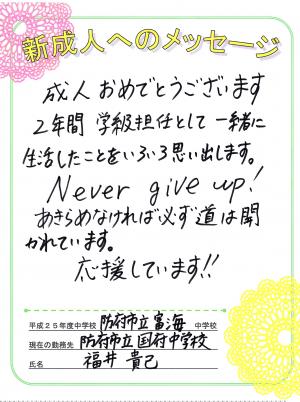 新成人へのメッセージ
成人 おめでとうございます
2年間 学級担任として 一緒に
生活したことをいろいろ思い出します。
Never give up!
あきらめなければ必ず道は開
かれています。
応援しています!!
平成25年度中学校 防府市立富海 中学校
現在の勤務先 防府市立国府中学校
氏名 福井 貴己